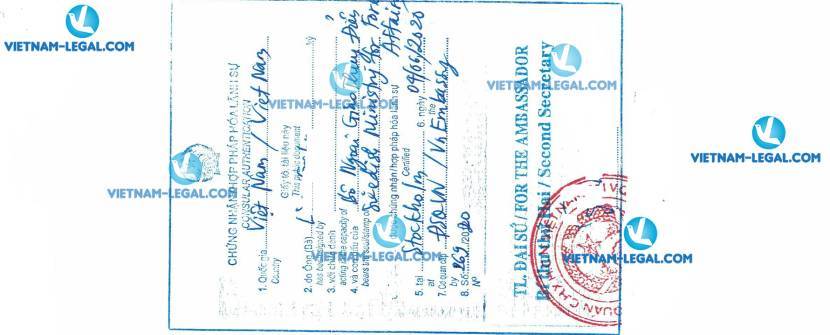 CHỨNG NHẬN/HỢP PHÁP HÓA LÃNH SỰ
CONSULAR AUTHENTICATION
1. Quốc gia Việt Nam / Viet Nam
Country
Giấy tờ, tài liệu này
This public document
2. do Ông (Bà) ký
has been signed by
3. với chức danh
acting in the capacity of
4. và con dấu của Bộ Ngoại Giao Thụy Điển
bears the seal/stamp of Swedish Ministry for Foreign Affairs
được chứng nhận/hợp pháp hóa lãnh sự
Certified
5. tại Stockholm 6. ngày 09/06/2020
at the
7. Cơ quan cấp ĐSQVN / VN Embassy
by
8. Số 269 /2020
Nº
TL. ĐẠI SỨ / FOR THE AMBASSADOR
Bí thư thứ Hai / Second Secretary
VIETNAM-LEGAL.COM
VIETNAM-LEGAL.COM
VIETNAM-LEGAL.COM
VIETNAM-LEGAL.COM
VIETNAM-LEGAL.COM
VIETNAM-LEGAL.COM
VIETNAM-LEGAL.COM